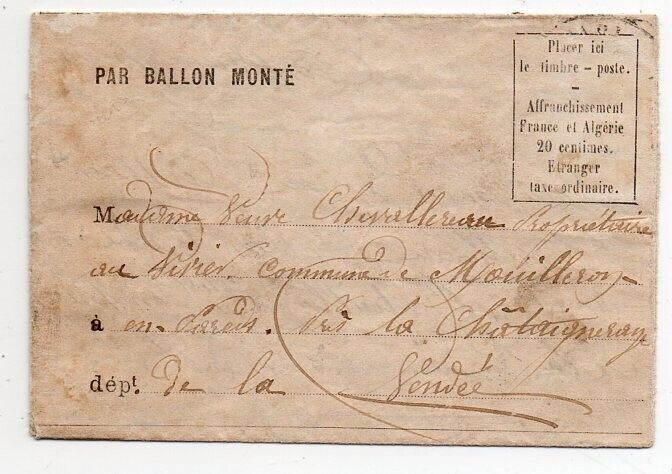 PAR BALLON MONTÉ
Placer ici
le timbre - poste.
-
Affranchissement
France et Algérie
20 centimes.
Etranger
taxe ordinaire.
Madame Veuve Chevallereau Propriétaire
au Vivier. Commune de Mouilleron
à en-Pareds. Près la Châtaigneraye
dépt. De la Vendée